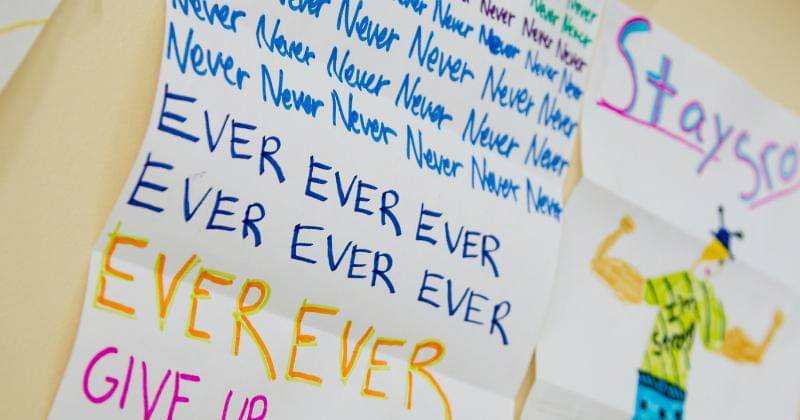 Never
Never Never
Never Never Never
Never Never Never Never
Never Never Never Never Never
Never Never Never Never Never Never
Never Never Never Never Never Never
EVER EVER EVER
EVER EVER EVER
EVER EVER
GIVE UP
Stay
I'm
strong